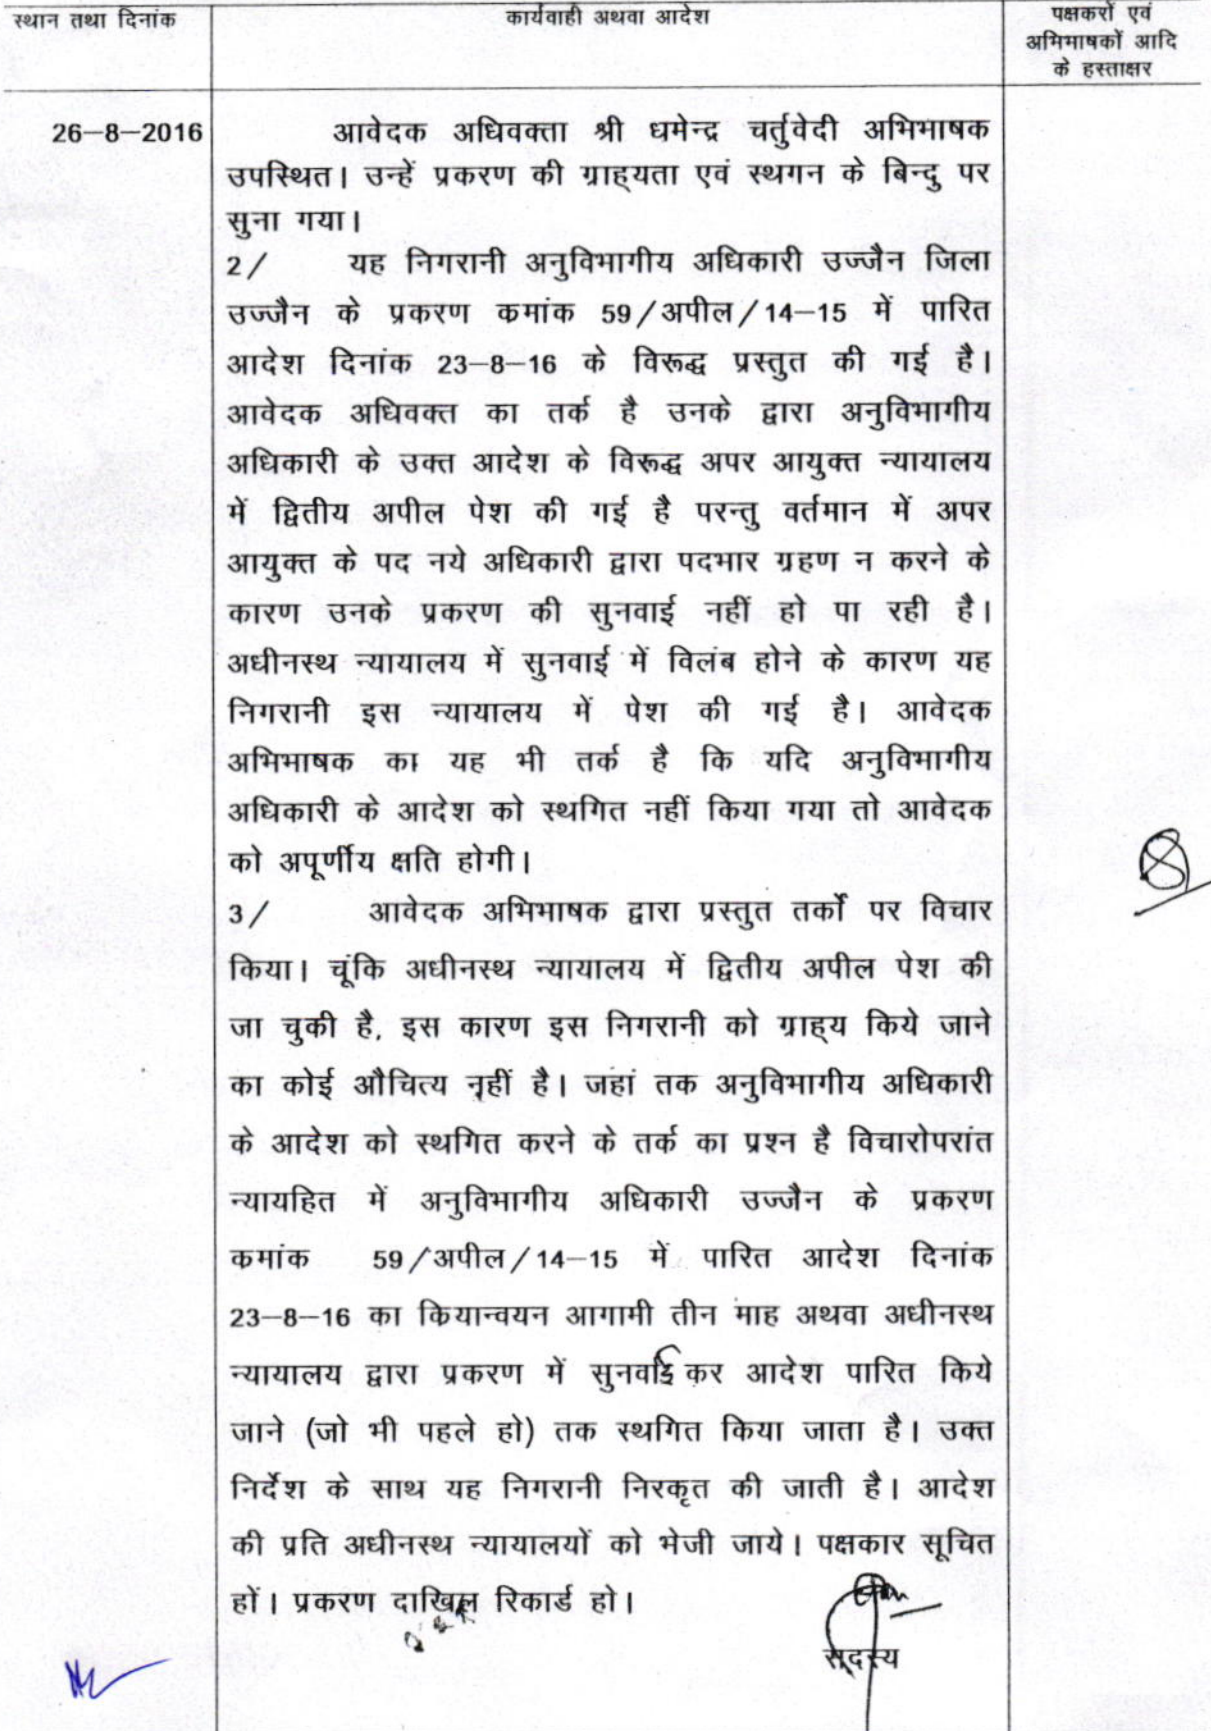 स्थान तथा दिनांक
कार्यवाही अथवा आदेश
पक्षकारों एवं
अभिभाषकों आदि
के हस्ताक्षर
26–8–2016
आवेदक अधिवक्ता श्री धमेन्द्र चर्तुवेदी अभिभाषक
उपस्थित। उन्हें प्रकरण की ग्राह्यता एवं स्थगन के बिन्दु पर
सुना गया।
2/ यह निगरानी अनुविभागीय अधिकारी उज्जैन जिला
उज्जैन के प्रकरण कमांक 59/अपील/14–15 में पारित
आदेश दिनांक 23–8–16 के विरूद्ध प्रस्तुत की गई है।
आवेदक अधिवक्त का तर्क है उनके द्वारा अनुविभागीय
अधिकारी के उक्त आदेश के विरूद्ध अपर आयुक्त न्यायालय
में द्वितीय अपील पेश की गई है परन्तु वर्तमान में अपर
आयुक्त के पद नये अधिकारी द्वारा पदभार ग्रहण न करने के
कारण उनके प्रकरण की सुनवाई नहीं हो पा रही है।
अधीनस्थ न्यायालय में सुनवाई में विलंब होने के कारण यह
निगरानी इस न्यायालय में पेश की गई है। आवेदक
अभिभाषक का यह भी तर्क है कि यदि अनुविभागीय
अधिकारी के आदेश को स्थगित नहीं किया गया तो आवेदक
को अपूर्णीय क्षति होगी।
3/ आवेदक अभिभाषक द्वारा प्रस्तुत तर्को पर विचार
किया। चूंकि अधीनस्थ न्यायालय में द्वितीय अपील पेश की
जा चुकी है, इस कारण इस निगरानी को ग्राह्य किये जाने
का कोई औचित्य नहीं है। जहां तक अनुविभागीय अधिकारी
के आदेश को स्थगित करने के तर्क का प्रश्न है विचारोपरांत
न्यायहित में अनुविभागीय अधिकारी उज्जैन के प्रकरण
कमांक 59/अपील/14–15 में पारित आदेश दिनांक
23–8–16 का कियान्वयन आगामी तीन माह अथवा अधीनस्थ
न्यायालय द्वारा प्रकरण में सुनवाई कर आदेश पारित किये
जाने (जो भी पहले हो) तक स्थगित किया जाता है। उक्त
निर्देश के साथ यह निगरानी निरकृत की जाती है। आदेश
की प्रति अधीनस्थ न्यायालयों को भेजी जाये। पक्षकार सूचित
हों। प्रकरण दाखिल रिकार्ड हो।
सदस्य